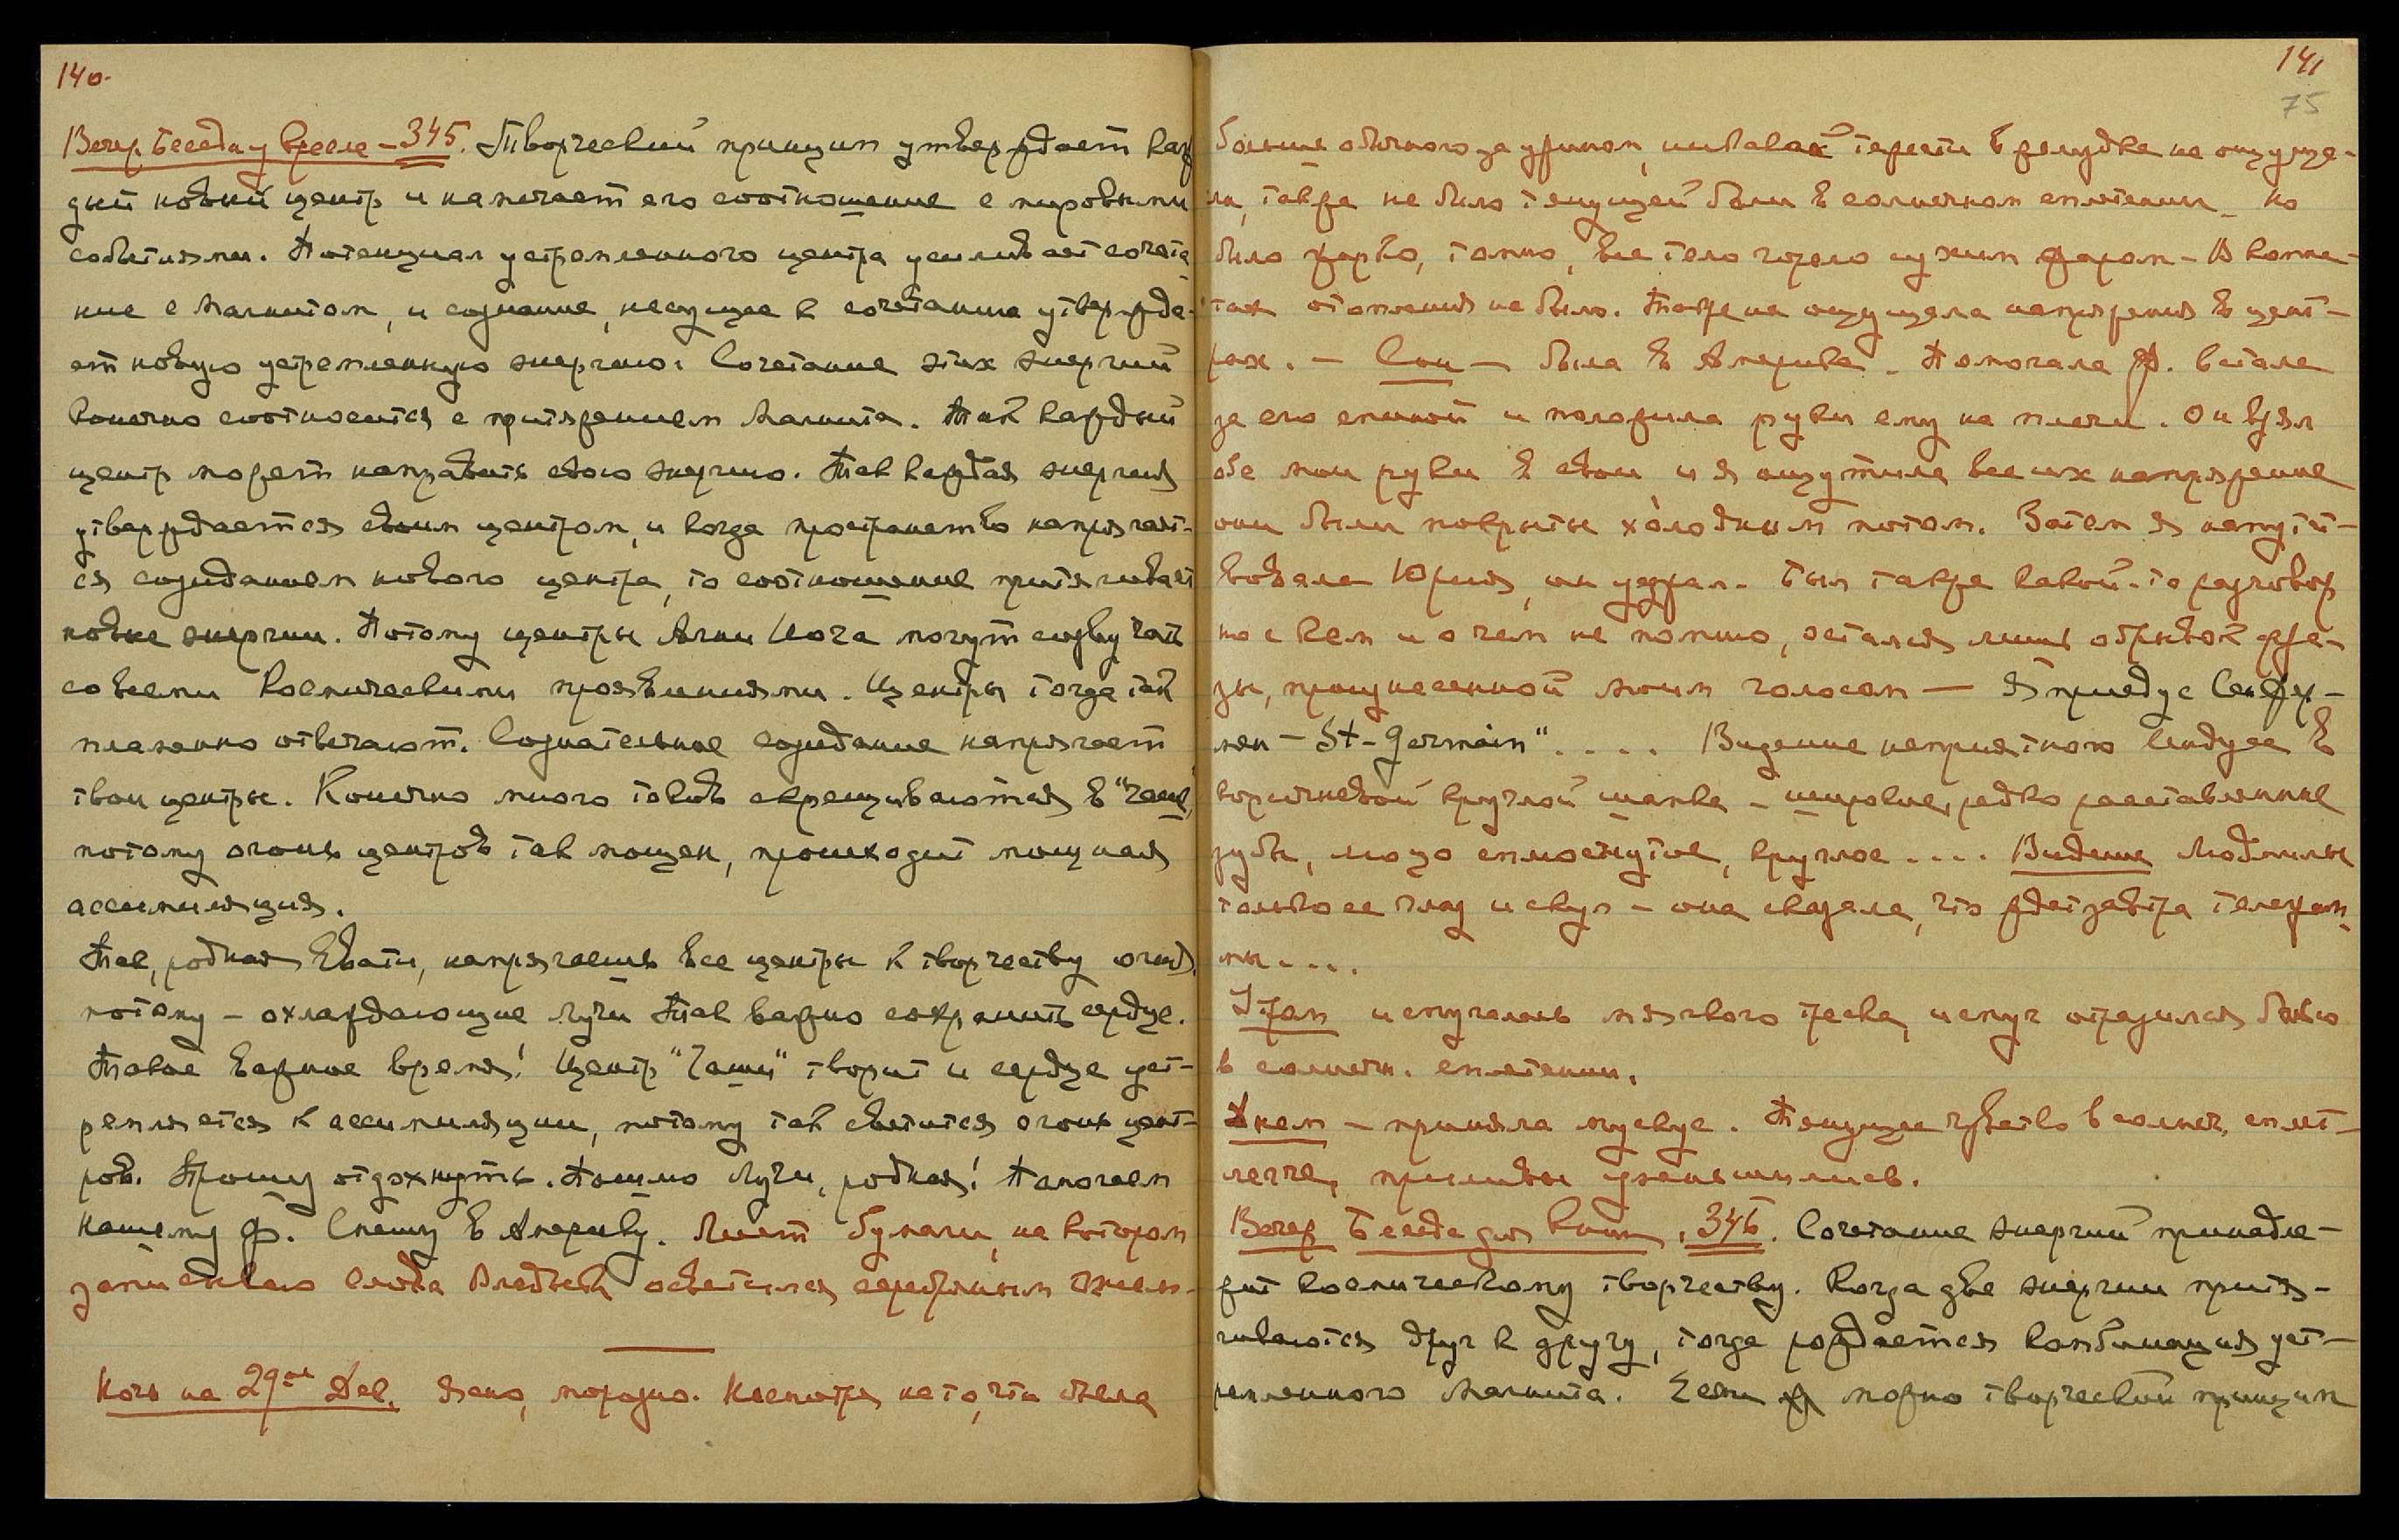 140.
Вечер. Беседа у кресла – 345. Творческий принцип утверждает каж
дый новый центр и намечает его соотношение с мировыми
событиями. Потенциал устремленного центра усиливает сочета
ние с Магнитом, и сознание, несущее к сочетанию утвержда-
ет новую устремленную энергию. Сочетание этих энергий
конечно соотносится с притяжением Магнита. Так каждый
центр может направить свою энергию. Так каждая энергия
утверждается своим центром, и когда пространство напрягает-
ся созиданием нового центра, то соотношение притягивает
новые энергии. Потому центры Агни Йога могут созвучать
со всеми космическими проявлениями. Центры тогда так
пламенно отвечают. Сознательное созидание напрягает
твои центры. Конечно много токов скрещиваются в "Чаше",
потому огонь центров так мощен, происходит мощная
ассимиляция.
Так, родная Свати, напрягаешь все центры к творчеству огня,
потому – охлаждающие лучи Так важно сохранить сердце.
Такое важное время! Центр "Чаши" творит и сердце уст-
ремляется к ассимиляции, потому так светится огонь цент-
ров. Прошу отдохнуть. Пошлю Лучи, родная! Помогаем
нашему Ф. Спешу в Америку. Лист бумаги, на котором
записываю слова Владыки осветился серебряным огнем.
Ночь на 29ое Дек. Ясно, морозно. Несмотря на то, что съела
141
75
больше обычного за ужином, никакой тяжести в желудке не ощуща-
ла, также не было тянущей боли в солнечном сплетении. Но
было жарко, томно, все тело горело сухим жаром – В комна-
тах отопления не было. Также не ощущала напряжения в цент-
рах. – Сон – была в Америке. Помогала Ф. Встала
за его спиной и положила руки ему на плечи. Он взял
обе мои руки в свои и я ощутила все их напряжение
они были покрыты холодным потом. Затем я напутст-
вовала Юрия, он уезжал. Был также какой-то разговор
но с кем и о чем не помню, остался лишь обрывок фра-
зы, произнесенной моим голосом – я приеду с Сен Жер-
мен – St-Germain" . . . . Видение неприятного Индуса в
коричневой круглой шапке – широкие, редко расставленные
зубы, лицо сплюснутое, круглое . . . . Видение Людмилы
только ее глаз и скул – она сказала, что ждет завтра телеграм
мы . . . .
Утром испугалась мягкого треска, испуг отразился болью
в солнечн. сплетении.
Днем – приняла мускус. Тянущее чувство в солнеч. сплет –
легче, приливы уменьшились.
Вечер Беседа для книги. 346. Сочетание энергий принадле-
жит космическому творчеству. Когда две энергии притя-
гиваются друг к другу, тогда рождается комбинация уст-
ремленного Магнита. Если можно творческий принцип